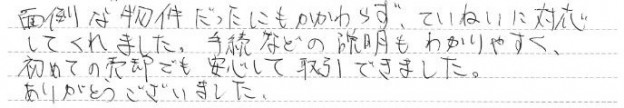 面倒な物件だったにもかかわらず、ていねいに対応
してくれました。手続などの説明もわかりやすく、
初めての売却でも安心して取引できました。
ありがとうございました、